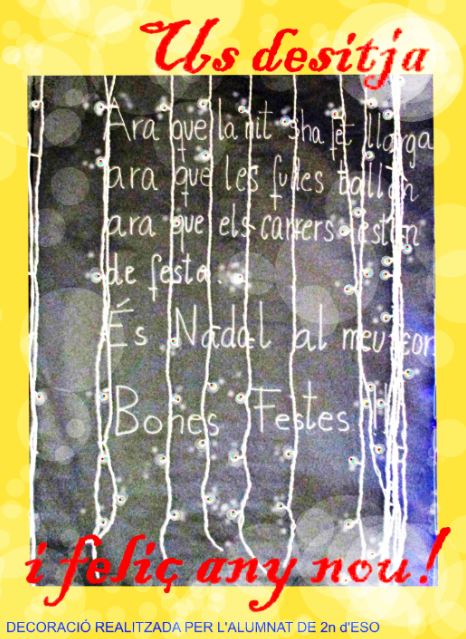 Us desitja
Ara que la nit s'ha fet llarga
ara que les fulles ballen
ara que els carrers estan
de festa..
És Nadal al meu cor.
Bones Festes!!
i feliç any nou!
DECORACIÓ REALITZADA PER L'ALUMNAT DE 2n d'ESO